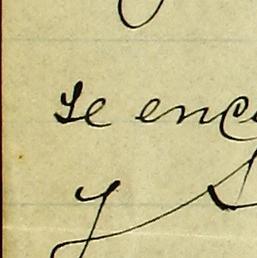 se enc
y S